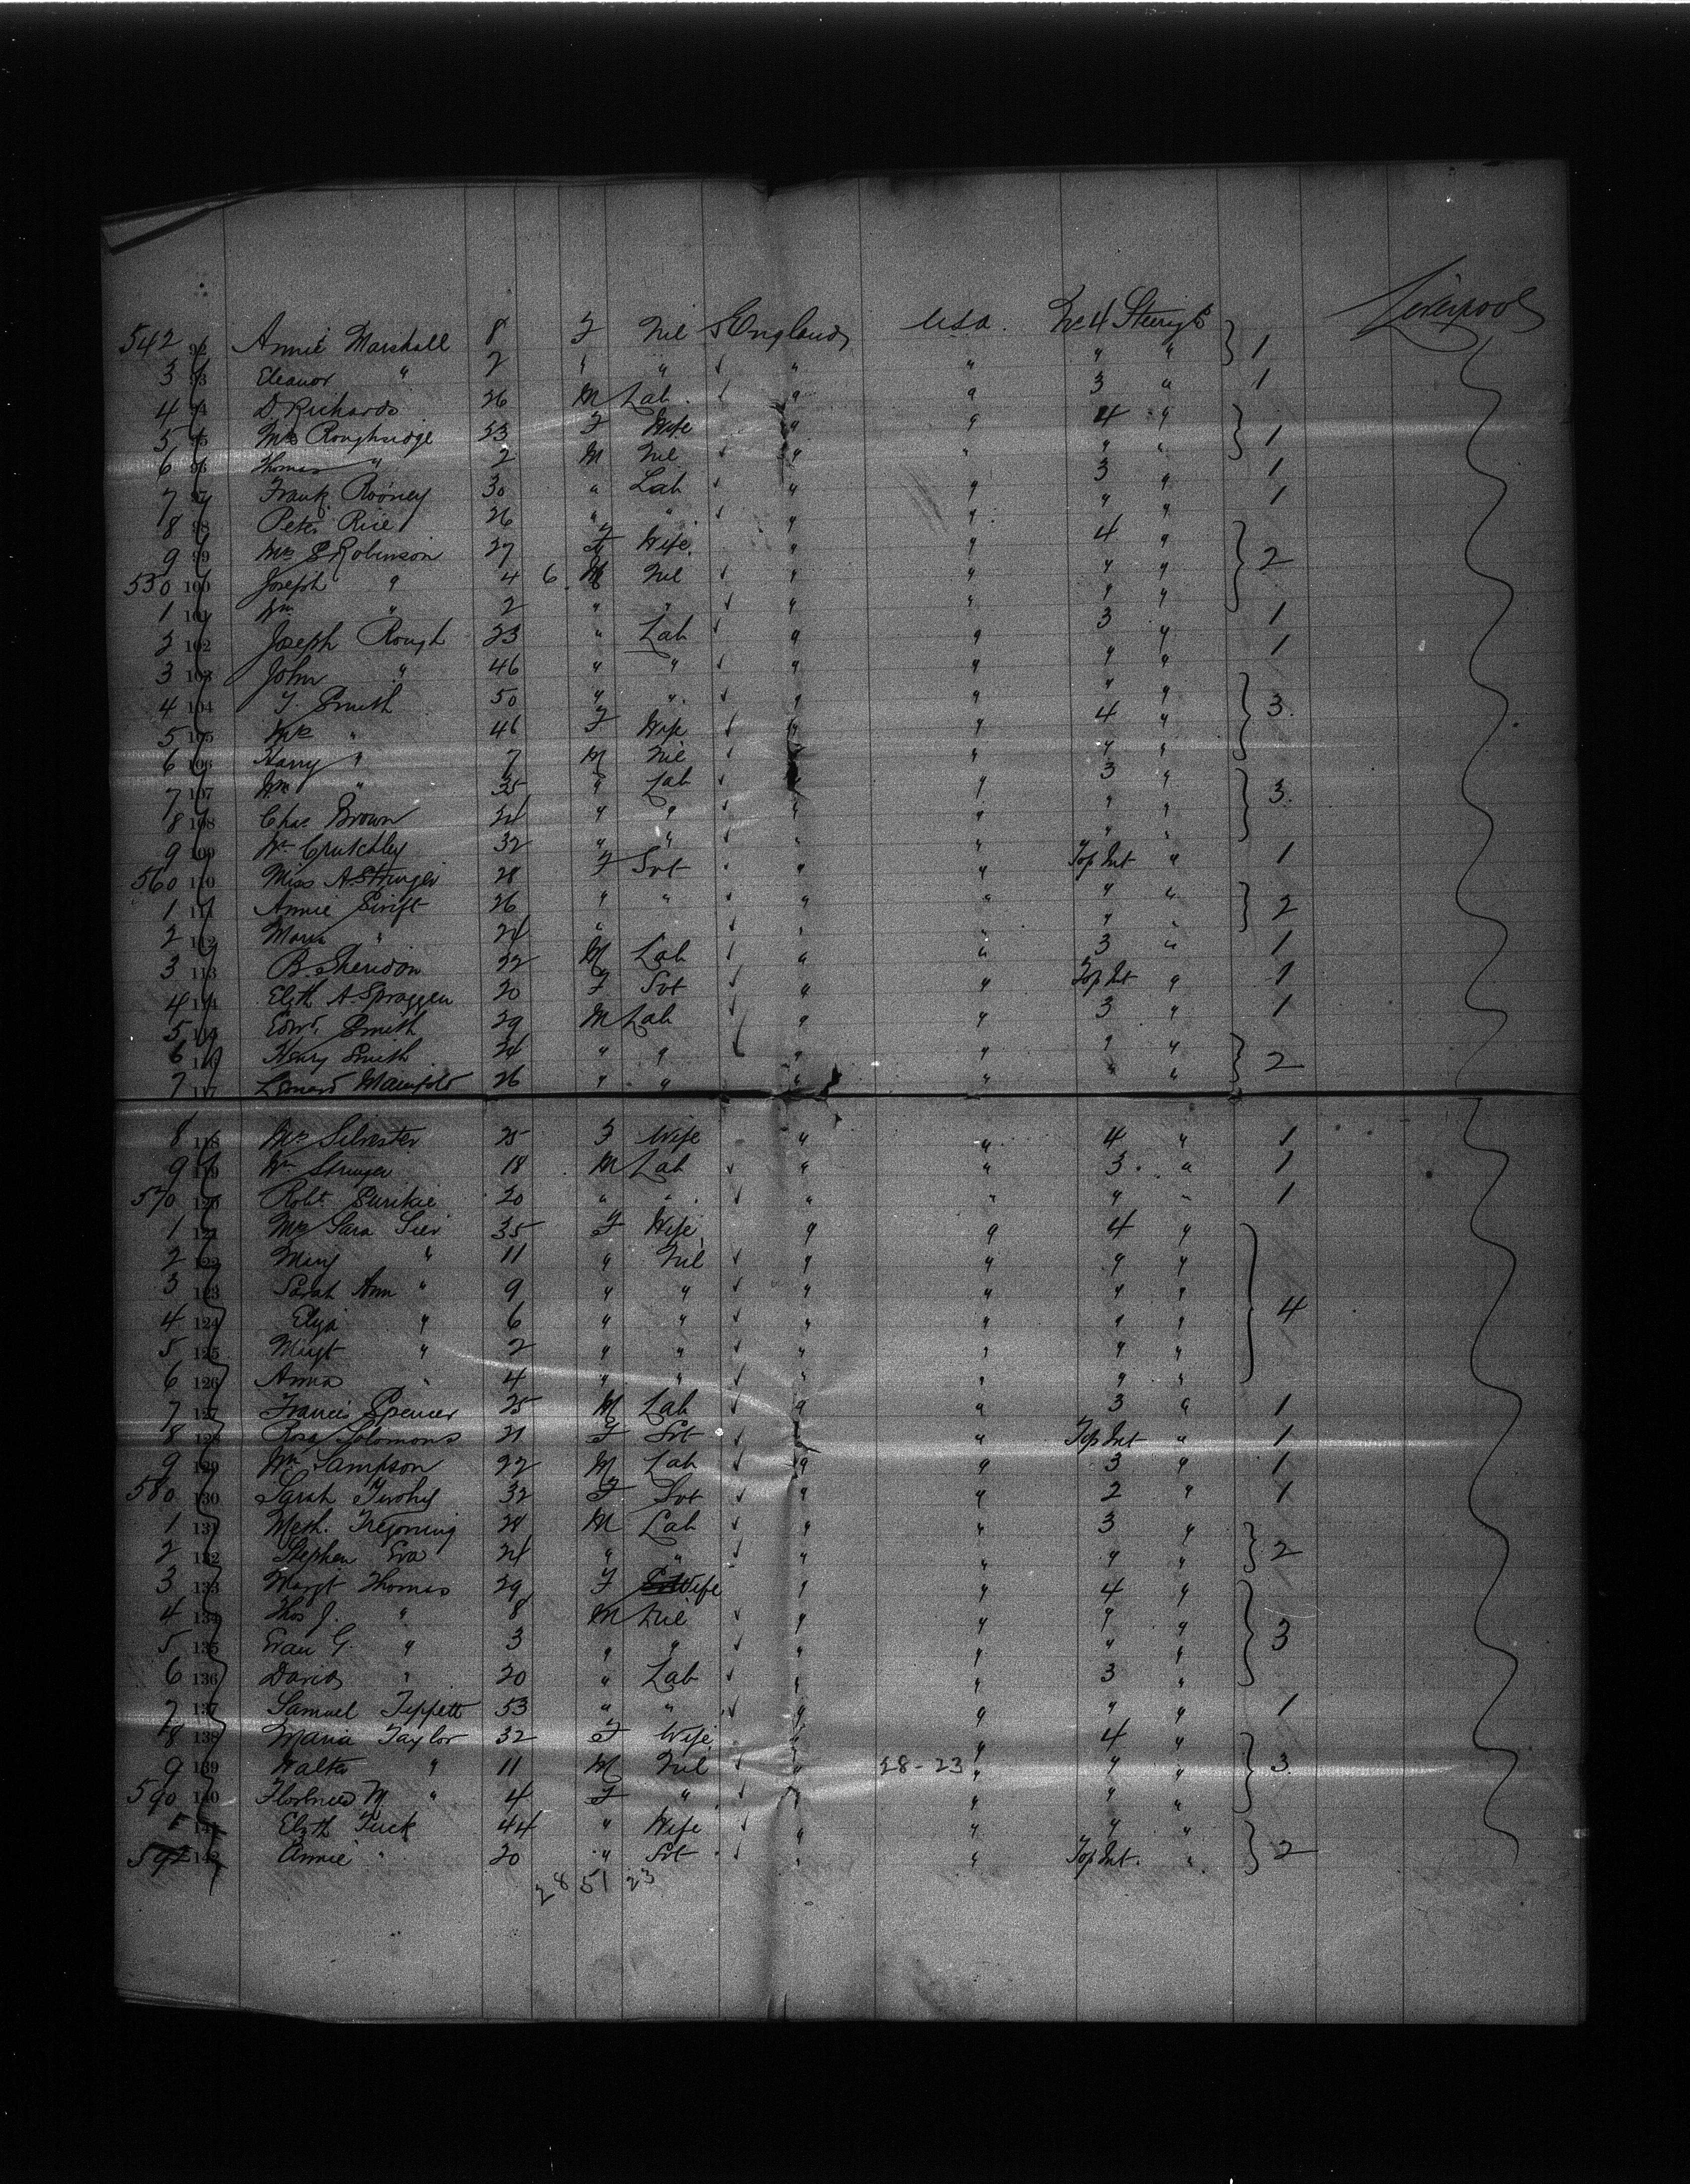 Liverpool
542 92 Annie Marshall 8 F Nil England Usa. No 4 Steerige } 1
3 93 Eleanor " 2 " " " " " "
4 94 D Richards 26 M Lab " " 3 " 1
5 95 Mrs Roughsidge 23 F Wife " " 4 " } 1
6 96 Thomas " 2 M Nil " " " "
7 97 Frank Rooney 30 " Lab " " 3 " 1
8 98 Peter Rice 26 " " " " " " 1
9 99 Mrs S Robinson 27 F Wife " " 4 " } 2
550 100 Joseph " 4 6 M Nil " " " "
1 101 Wm " 2 " " " " " "
2 102 Joseph Rough 23 " Lab " " 3 " 1
3 103 John " 46 " " " " " " 1
4 104 T. Smith 50 " " " " " " } 3
5 105 Mrs " 46 F Wife " " 4 "
6 106 Harry " 7 M Nil " " " "
7 107 Wm " 35 " Lab " " 3 " } 3
8 108 Chas Brown 24 " " " " " "
9 109 Wm Crutchley 32 " " " " " "
560 110 Miss A Stringer 28 F Svt " " Top Int " 1
1 111 Annie Swift 26 " " " " " " } 2
2 112 Maria " 24 " " " " " "
3 113 B. Sheridon 22 M Lab " " 3 " 1
4 114 Elzth A. Spraggen 20 F Svt " " Top Int " 1
5 115 Edwd. Smith 29 M Lab " " 3 " 1
6 116 Henry Smith 24 " " " " " " } 2
7 117 Leonard Mainfold 26 " " " " " "
8 118 Mrs Silvester 25 F Wife " " 4 " 1
9 119 Wm Stringer 18 M Lab " " 3 " 1
570 120 Robt. 20 " " " " " " 1
1 121 Mrs Sara 35 F Wife " " 4 " } 4
2 122 Mary " 11 " Nil " " " "
3 123 Sarah Ann " 9 " " " " " "
4 124 Eliza " 6 " " " " " "
5 125 Margt " 2 " " " " " "
6 126 Annie " 4 " " " " " "
7 127 Francis Spencer 25 M Lab " " 3 " 1
8 128 Rosa Solomons 21 F Svt " " Top Int " 1
9 129 Wm Sampson 22 M Lab " " 3 " 1
580 130 Sarah 32 F Svt " " 2 " 1
1 131 Meth. Tregoning 28 M Lab " " 3 " } 2
2 132 Stephen Eva 24 " " " " " "
3 133 Margt Thomas 29 F Wife " " 4 " } 3
4 134 Thos J. " 8 M Nil " " " "
5 135 Evan G. " 3 " " " " " "
6 136 David " 20 " Lab " " 3 "
7 137 Samuel Teppett 53 " " " " " " 1
8 138 Maria Taylor 32 F Wife " " 4 " } 3
9 139 Walter " 11 M Nil " 28-23 " " "
590 140 Florence M " 4 F " " " " "
1 141 Elzth Tuck 44 " Wife " " " " } 2
592 142 Annie " 20 " Svt " " Top Int. "
28 51 23